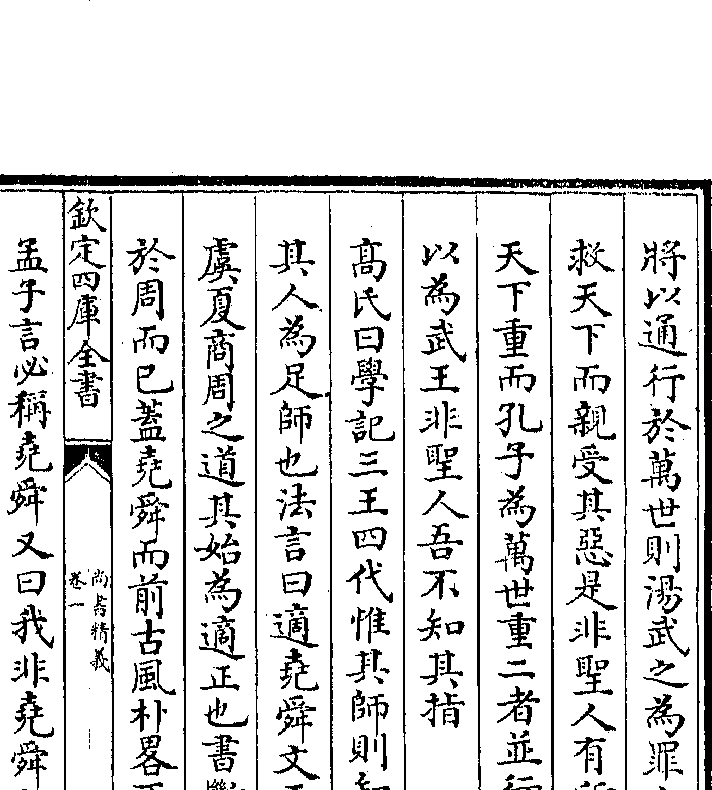 將以通行於萬世則湯武之為罪
救天下而親受其惡是非聖人有
天下重而孔子為萬世重二者並行
以為武王非聖人吾不知其指
高氏曰學記三王四代惟其師則
其人為足師也法言曰適堯舜文
虞夏商周之道其始為適正也書
於周而已蓋堯舜而前古風朴畧
欽定四庫全書
尚書精義
卷一
孟子言必稱堯舜又曰我非堯舜